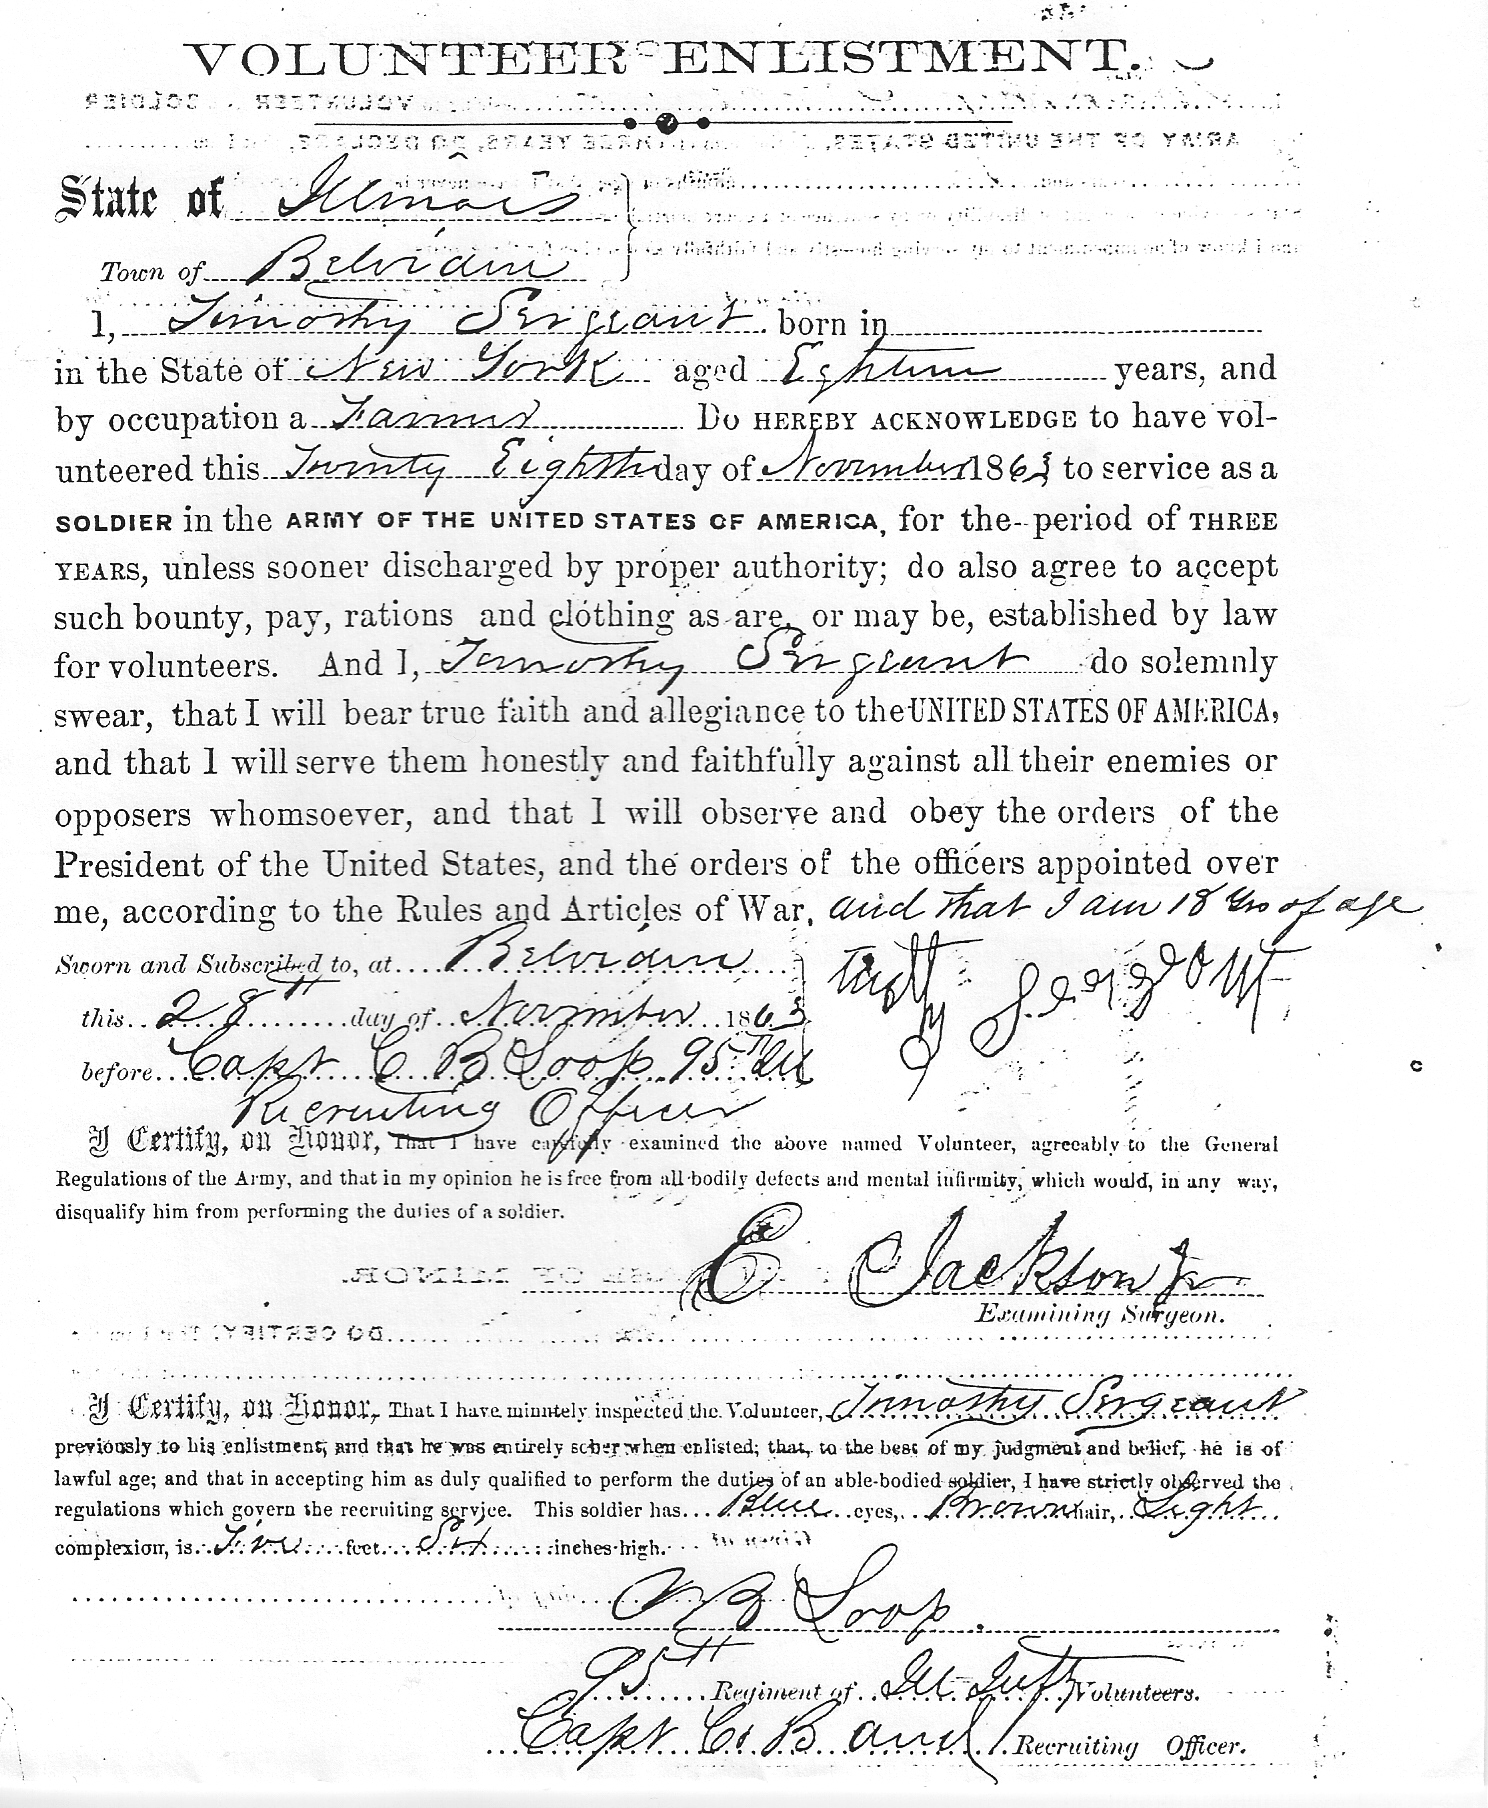 VOLUNTEER ENLISTMENT.
State of Illinois
Town of Belvidere
I, Timothy Sergeant born in
in the State of New York aged Eghteen years, and
by occupation a Farmer Do HEREBY ACKNOWLEDGE to have vol-
unteered this Twenty Eighth day of November 1863 to service as a
SOLDIER in the ARMY OF THE UNITED STATES OF AMERICA, for the period of THREE
YEARS, unless sooner discharged by proper authority; do also agree to accept
such bounty, pay, rations and clothing as are, or may be, established by law
for volunteers. And I, Timothy Sergeant do solemnly
swear, that I will bear true faith and allegiance to the UNITED STATES OF AMERICA,
and that I will serve them honestly and faithfully against all their enemies or
opposers whomsoever, and that I will observe and obey the orders of the
President of the United States, and the orders of the officers appointed over
me, according to the Rules and Articles of War, and that I am 18 Yrs of age
Sworn and Subscribed to, at Belvidere
this 28th day of November 1863
before Capt C B Loop 95th Ill
Recruiting Officer
I Certify, on Honor, That I have carefully examined the above named Volunteer, agreeably to the General
Regulations of the Army, and that in my opinion he is free from all bodily defects and mental infirmity, which would, in any way,
disqualify him from performing the duties of a soldier.
E Jackson Jr
Examining Surgeon.
I Certify, on Honor, That I have minutely inspected the Volunteer, Timothy Sergeant
previously to his enlistment, and that he was entirely sober when enlisted; that, to the best of my judgment and belief, he is of
lawful age; and that in accepting him as duly qualified to perform the duties of an able-bodied soldier, I have strictly observed the
regulations which govern the recruiting service. This soldier has Blue eyes, Brown hair, Light
complexion, is Five feet Six inches high.
C B Loop
95th Regiment of Ill Inft Volunteers.
Capt Co B and Recruiting Officer.